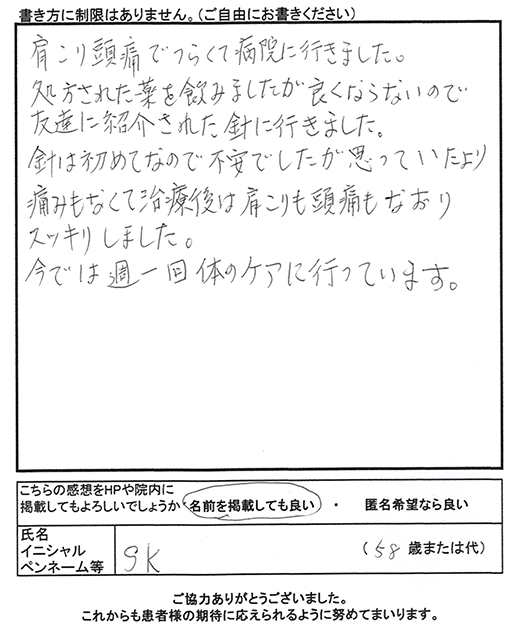 書き方に制限はありません。(ご自由にお書きください)
肩こり頭痛でつらくて病院に行きました。
処方された薬を飲みましたが良くならないので
友達に紹介された針に行きました。
針は初めてなので不安でしたが思っていたより
痛みもなくて治療後は肩こりも頭痛もなおり
スッキリしました。
今では週一回体のケアに行っています。
こちらの感想をHPや院内に
掲載してもよろしいでしょうか 名前を掲載しても良い ・ 匿名希望なら良い
氏名
イニシャル
ペンネーム等 SK (58 歳または代)
ご協力ありがとうございました。
これからも患者様の期待に応えられるように努めてまいります。